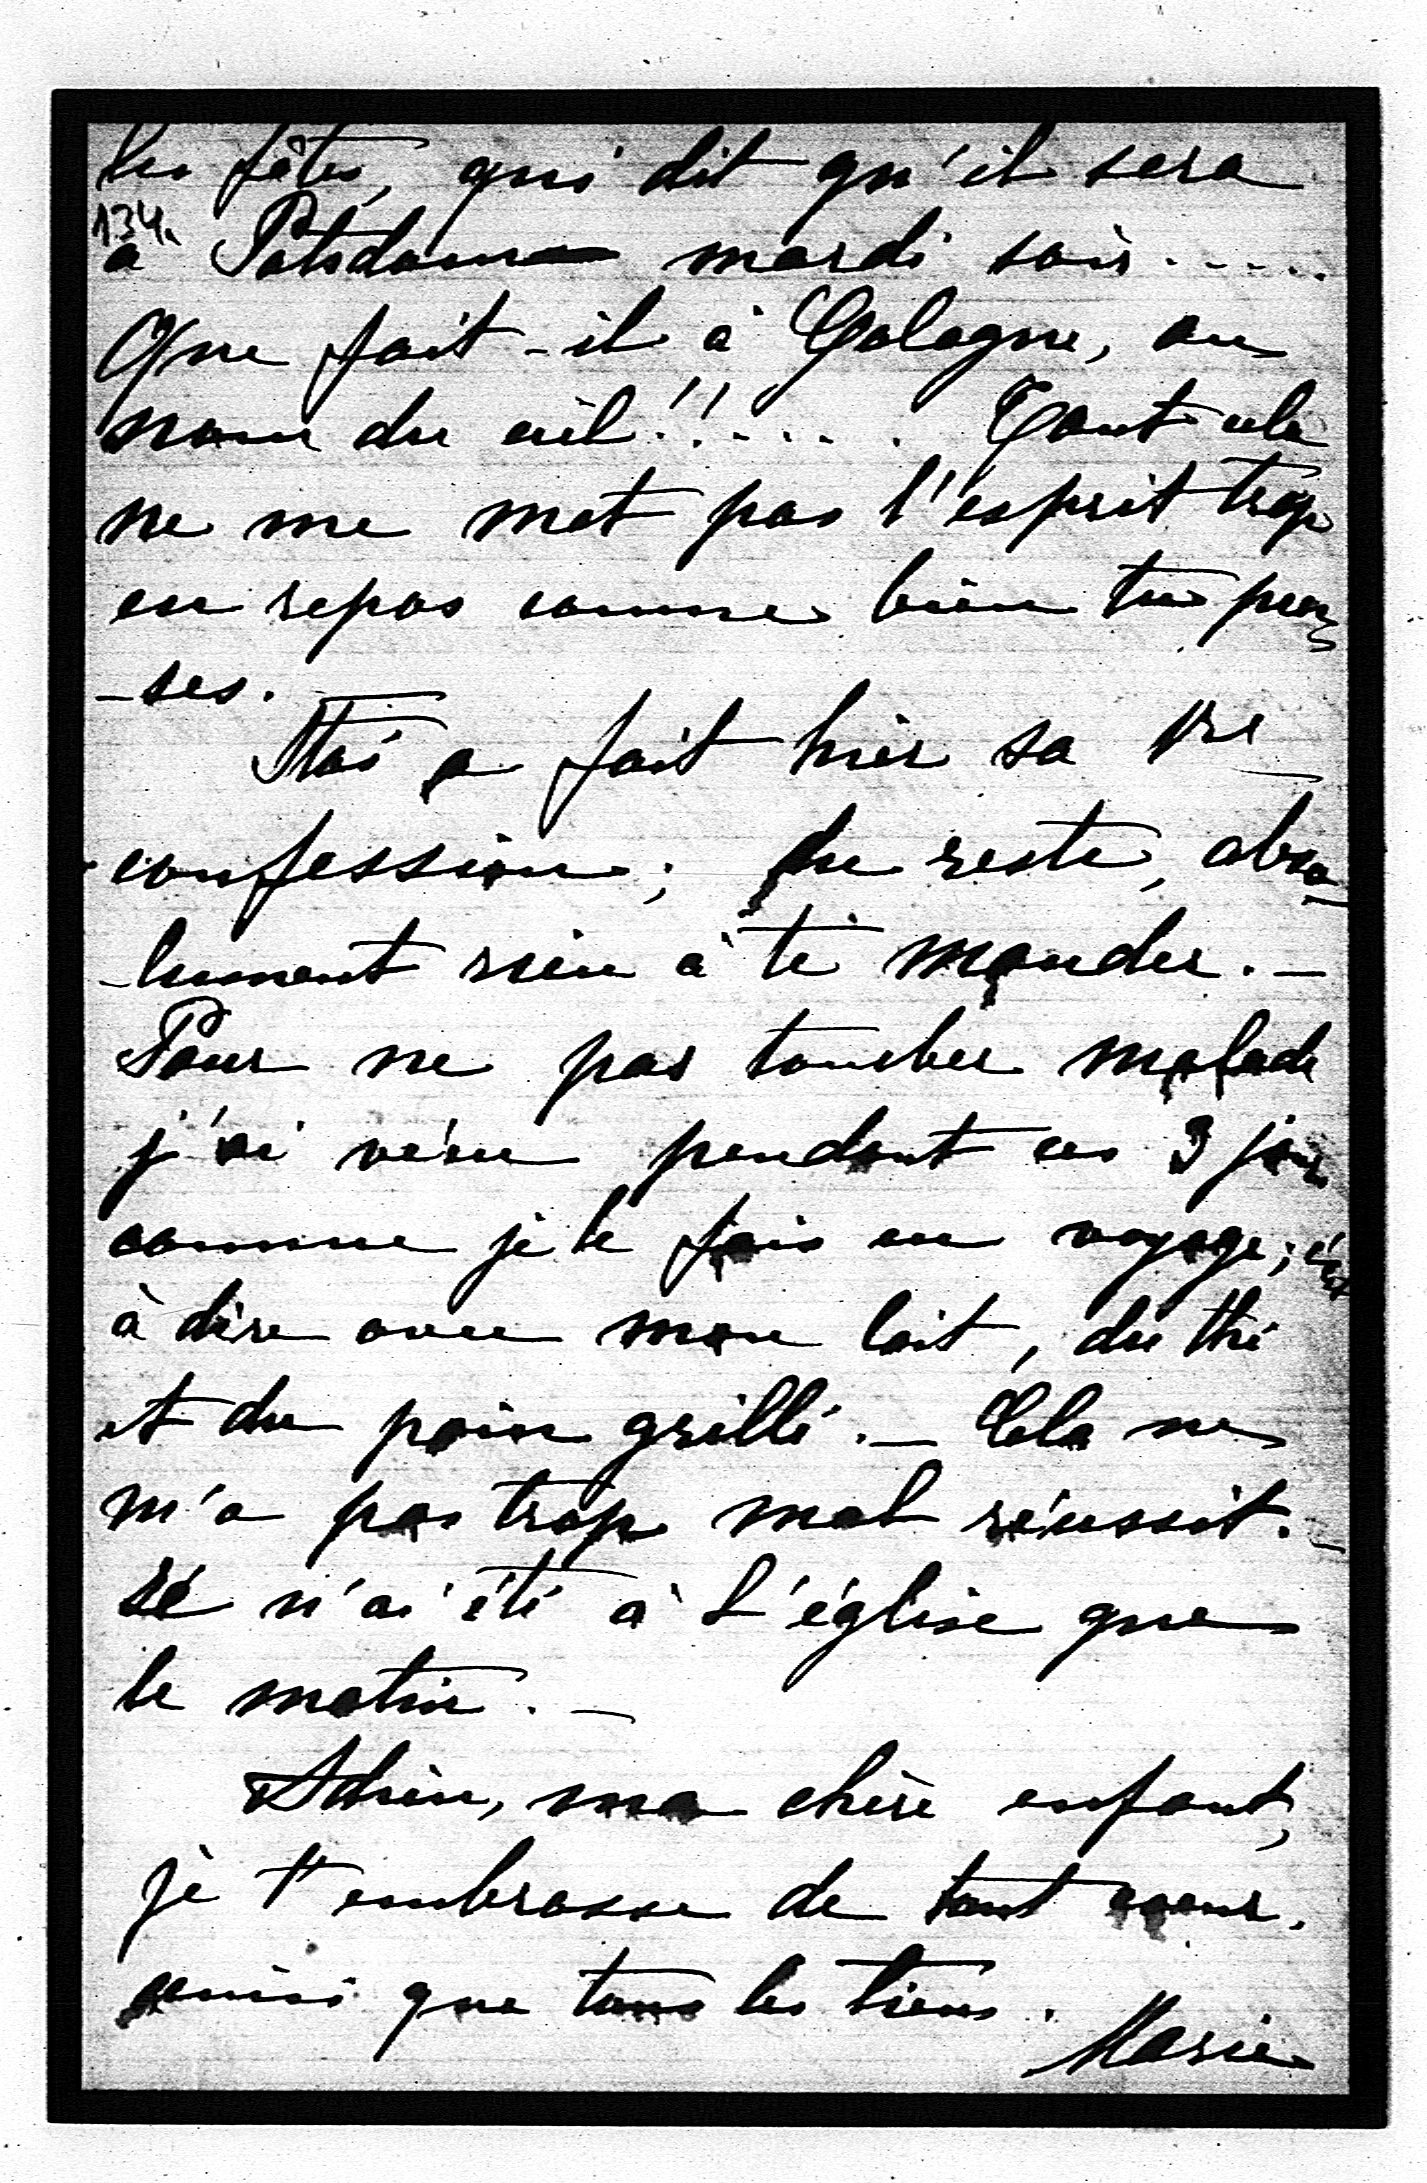 les fêtes, qui dit qu'il sera
134.
à Potsdam mardi soir.....
Que fait-il à Cologne, au
nom du ciel!!..... Tout cela
ne me met pas l'esprit trop
en repos comme bien tu pen
-ses.
Staś a fait hier sa 1re
confession; du reste, abso-
-lument rien à te mander. _
Pour ne pas tomber malade
j'ai vécu pendant ces 3 jours
comme je le fais en voyage; c'est
à dire avec mon lait, du thé
et du pain grillé. _ Cela ne
m'a pas trop mal réussit. _
Je n'ai été à l'église que
le matin. _
Adieu, ma chère enfant,
je t'embrasse de tout coeur,
ainsi que tous les tiens.
Marie